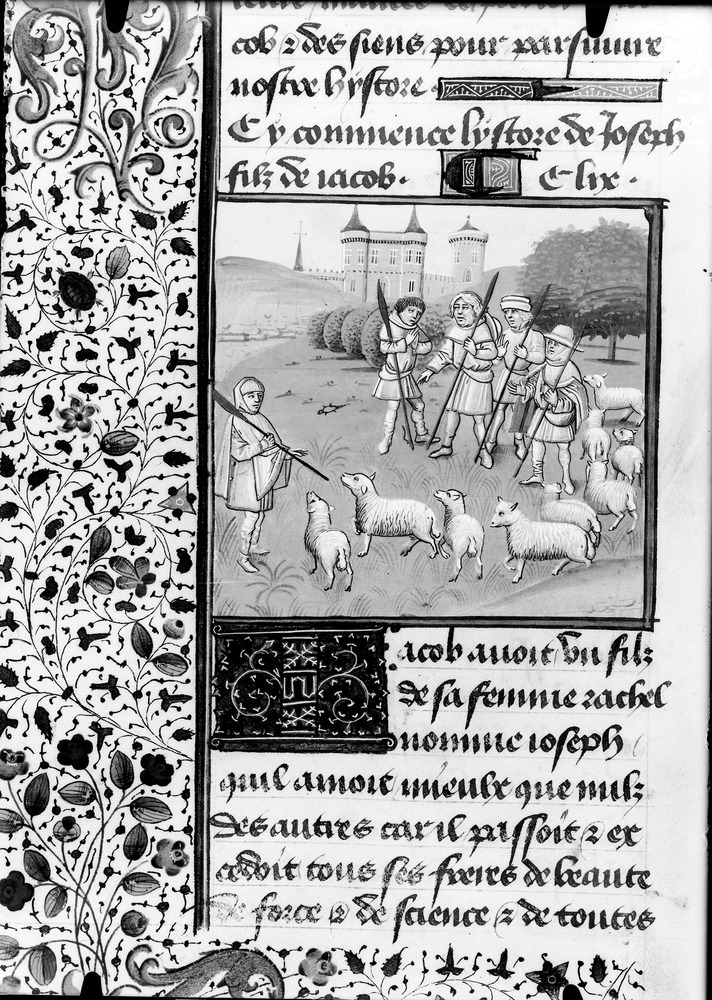 cob ⁊ des siens pour parsuiure
nostre hystore
Cy commence lystore de Joseph
filz de iacob. C lix.
Iacob auoit vn filz
de sa femme rachel
nomme ioseph
quil amoit mieulx que nulz
des autres car il passoit ⁊ ex
cedoit tous ses freres de beaute
de force ⁊ de science ⁊ de toutes